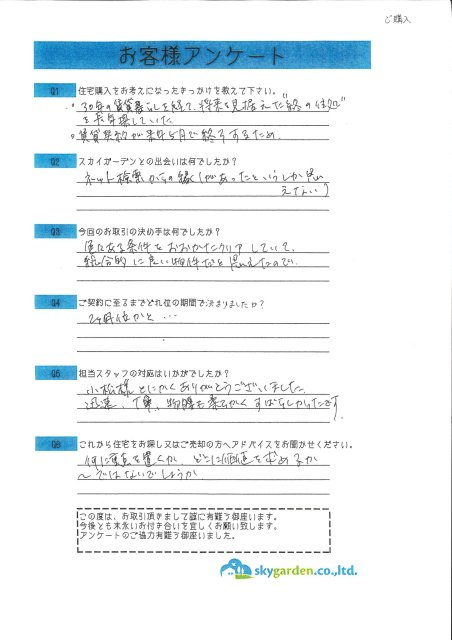 ご購入
お客様アンケート
Q1 住宅購入をお考えになったきっかけを教えて下さい。
・30年の賃貸暮らしを経て、将来を見据えた"終の住処"
を長年探していた
・賃貸契約が来年5月で終了するため
Q2 スカイガーデンとの出会いは何でしたか?
ネット検索からの縁があったとしか思
えない
Q3 今回のお取引の決め手は何でしたか?
色々ある条件をおおかたクリアしていて、
総合的に良い物件だと思えたので
Q4 ご契約に至るまでどれ位の期間で決まりましたか?
2ヶ月位かと…
Q5 担当スタッフの対応はいかがでしたか?
小松様とにかくありがとうございました
迅速、丁寧、物腰お柔らかく すばらしかったです
Q6 これから住宅をお探し又はご売却の方へアドバイスをお聞かせください。
何に重点を置くか どこに価値を求めるか
〜ではないでしょうか
この度は、お取引頂きまして誠に有難う御座います。
今後とも末永いお付き合いを宜しくお願い致します。
アンケートのご協力有難う御座いました。
skygarden.co.,ltd.